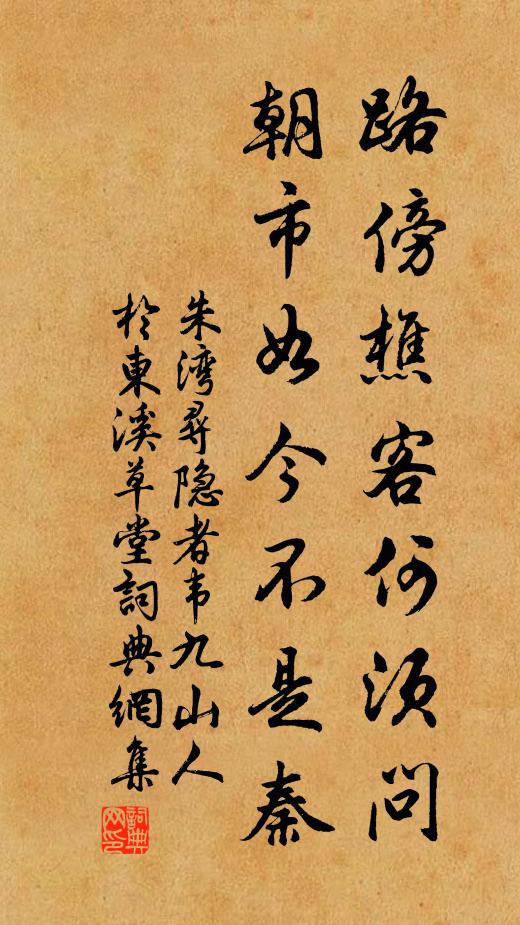 路傍樵客何須問
朝市如今不是秦
朱湾尋隐者韦九山人
於東溪草堂詞典網集
詞典网印